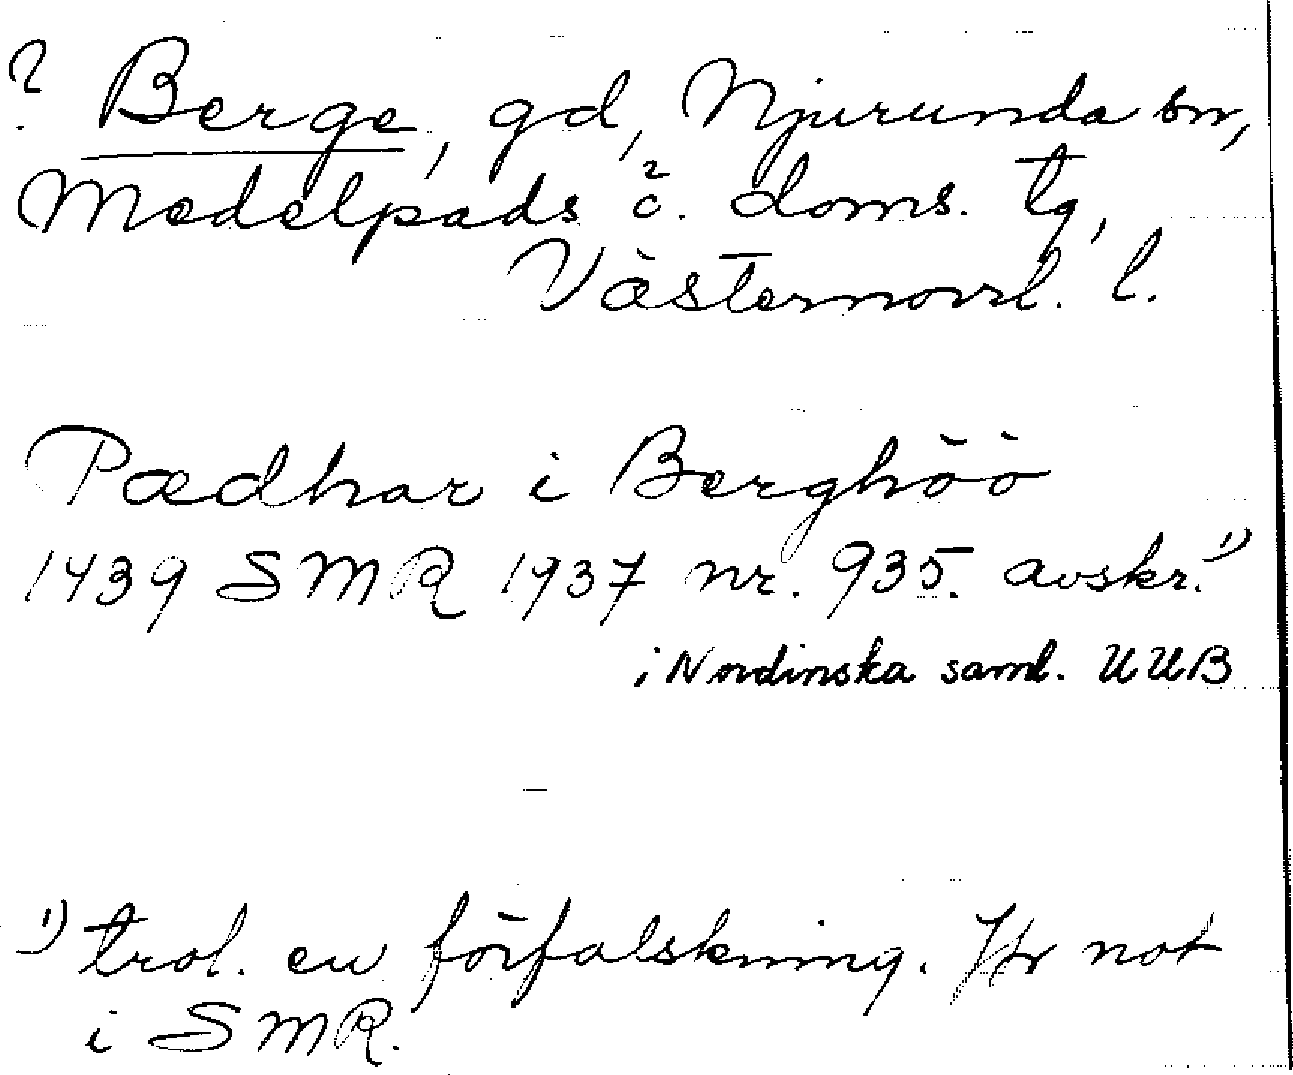 ? Berge, gd, Njurunda sn,
Medelpads ö. doms. tg,
Västernorrl. l.
Pædhar i Berghöö
1439 SMR 1937 nr. 935. avskr.¹⁾
i Nordinska saml. UUB
¹⁾ trol. en förfalskning. Jfr not
i SMR.